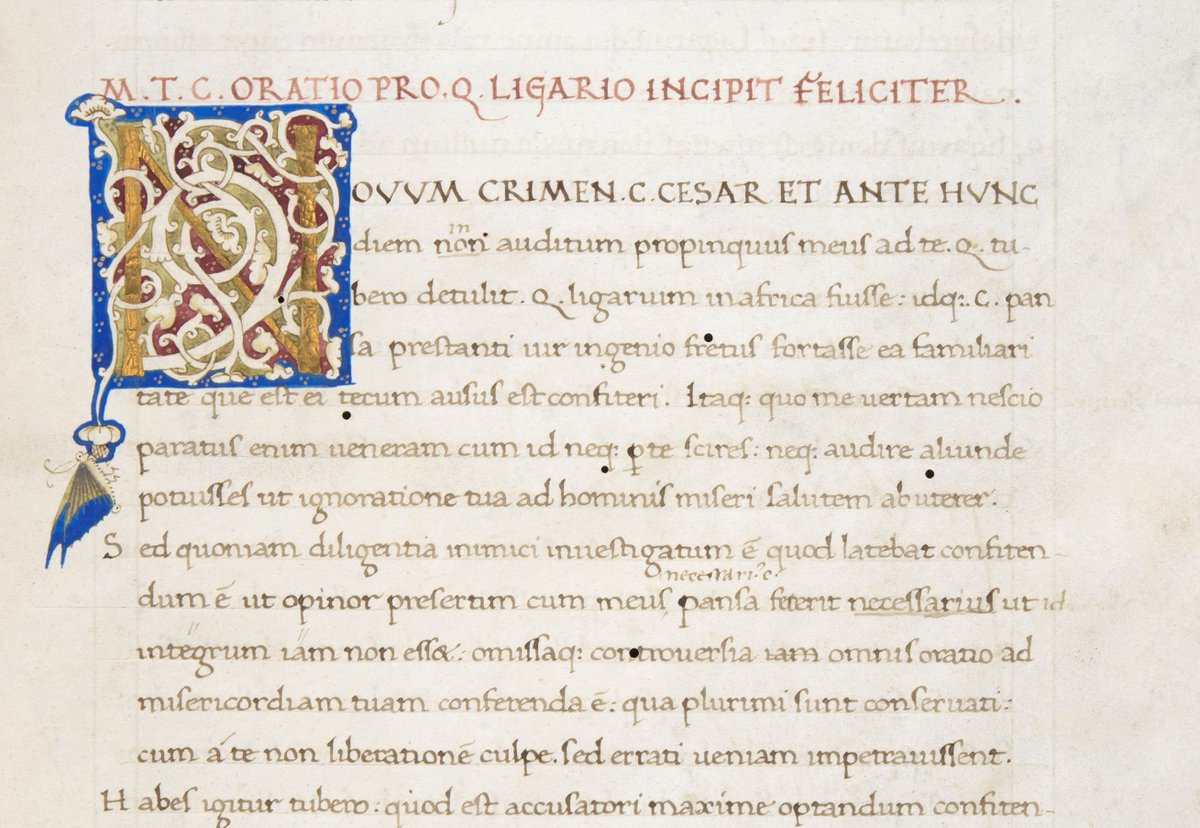 M.T.C. ORATIO PRO.Q.LIGARIO INCIPIT FELICITER.
NOVUM CRIMEN.C.CESAR ET ANTE HVNC
in
diem non auditum propinquus meus ad te.Q.tu-
bero detulit. Q.ligarium in africa fuisse: idq:.C.pan
sa prestanti uir ingenio fretus fortasse ea familiari
tate que est ei tecum ausus est confiteri. Itaq: quo me uertam nescio
paratus enim ueneram cum id neq: ꝑ te scires: neq: audire aliunde
potuisses ut ignoratione tua ad hominis miseri salutem abuterer.
Sed quoniam diligentia inimici inuestigatum ē quod latebat confiten-
necessari
dum ē ut opinor presertim cum meus pansa fecerit necessarius ut id
integrum iam non esset: omissaq: controuersia iam omnis oratio ad
misericordiam tuam conferenda ē: qua plurimi sunt conseruati:
cum a te non liberationē culpe. sed errati ueniam impetrauissent.
Habes igitur tubero: quod est accusatori maxime optandum confiten-